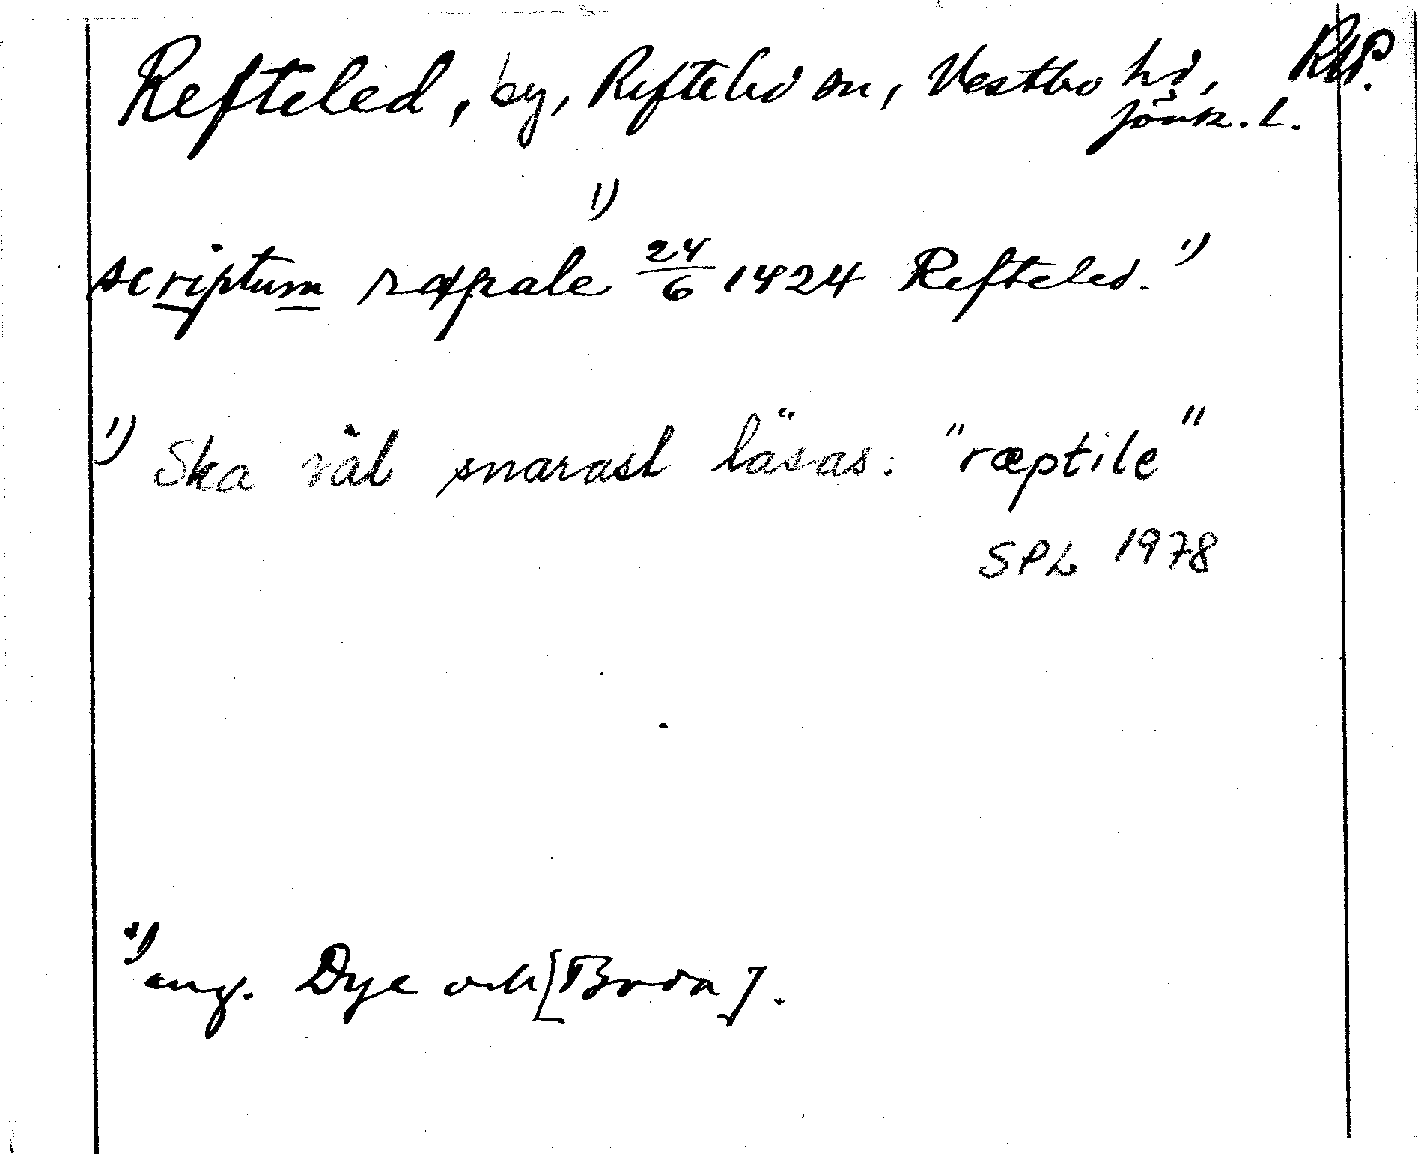 Refteled, by, Refteled sn, Vestbo hd, RAP.
Jönk. l.
1)
scriptum ræpale 24/6 1424 Refteled. 1)
1) Ska väl snarast läsas: "ræptile"
SPL 1978
1) ang. Dye och [Broda].